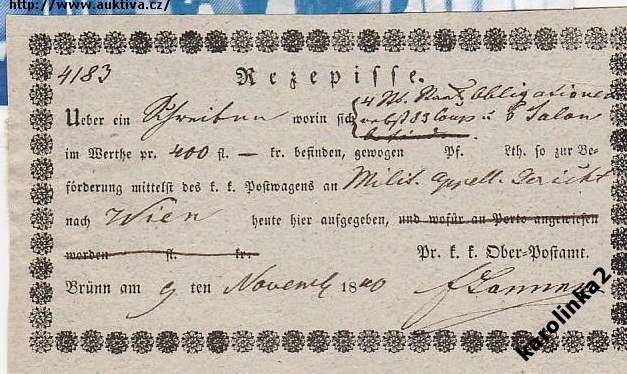 http://www.auktiva.cz/
4183
Rezepisse.
4 St. Staats Obligationen
Ueber ein Schreiben worin sich nebst 83 Coup. u 6 Talon
im Werthe pr. 400 fl. — kr. befinden, gewogen Pf. Lth. so zur Be-
förderung mittelst des k. k. Postwagens an Milit. Appell. Gericht
nach Wien heute hier aufgegeben, und wofür an Porto angewiesen
worden fl. kr. Pr. k. k. Ober-Postamt.
Brünn am 9 ten Novemb 1840
karolinka2